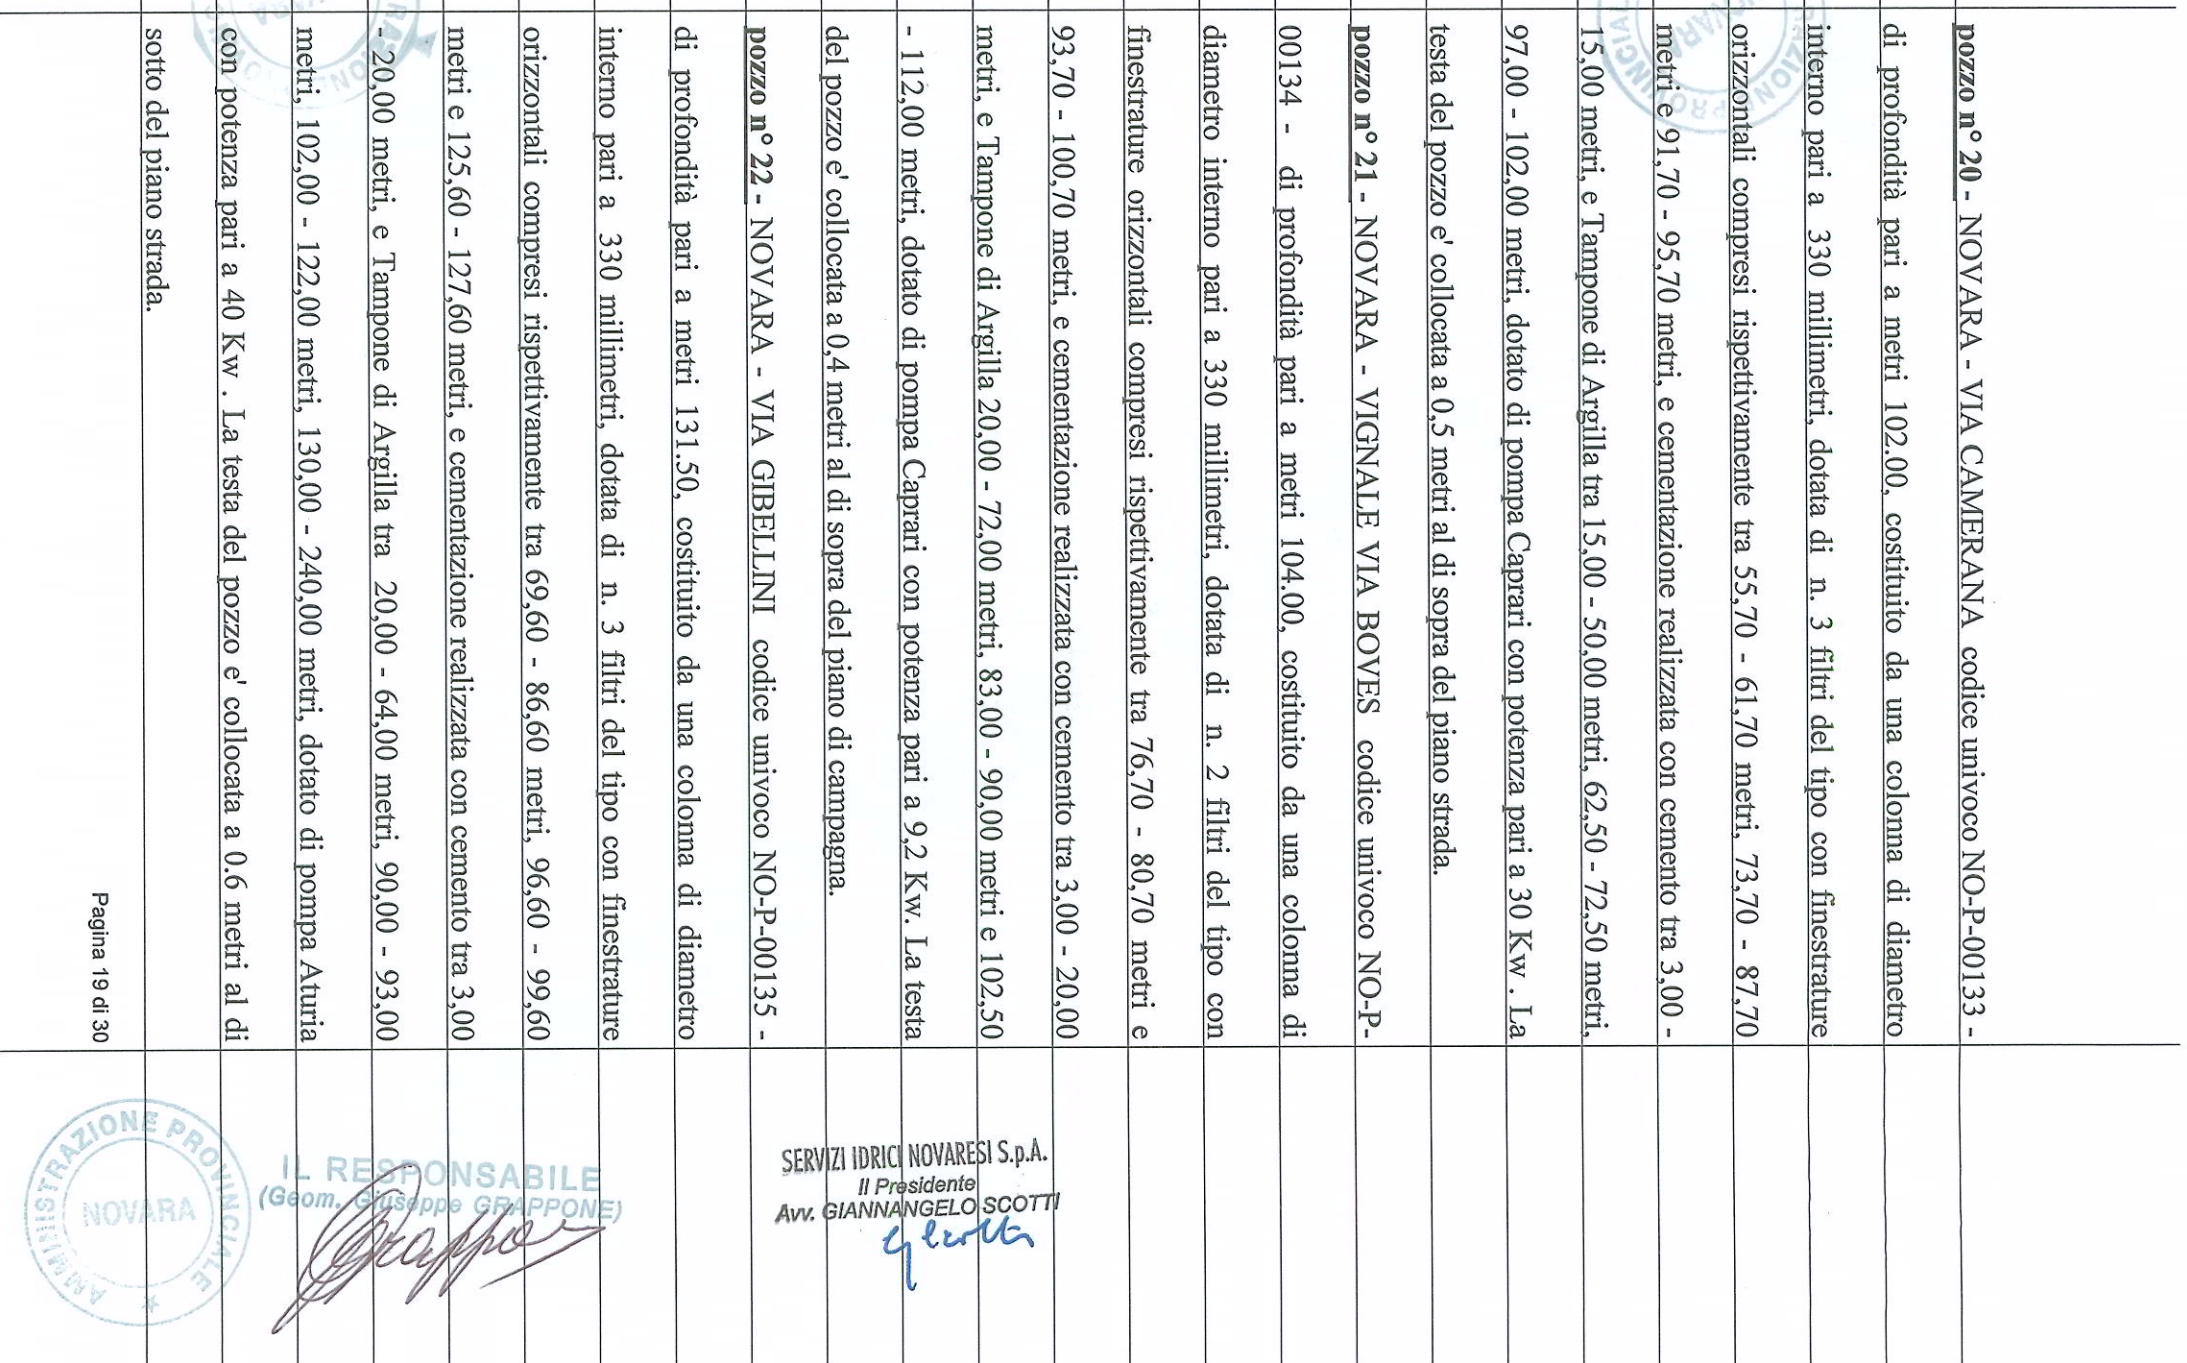 pozzo n° 20 - NOVARA - VIA CAMERANA codice univoco NO-P-00133 -
di profondità pari a metri 102.00, costituito da una colonna di diametro
interno pari a 330 millimetri, dotata di n. 3 filtri del tipo con finestrature
orizzontali compresi rispettivamente tra 55,70 - 61,70 metri, 73,70 - 87,70
metri e 91,70 - 95,70 metri, e cementazione realizzata con cemento tra 3,00 -
15,00 metri, e Tampone di Argilla tra 15,00 - 50,00 metri, 62,50 - 72,50 metri,
97,00 - 102,00 metri, dotato di pompa Caprari con potenza pari a 30 Kw . La
testa del pozzo e' collocata a 0,5 metri al di sopra del piano strada.
pozzo n° 21 - NOVARA - VIGNALE VIA BOVES codice univoco NO-P-
00134 - di profondità pari a metri 104.00, costituito da una colonna di
diametro interno pari a 330 millimetri, dotata di n. 2 filtri del tipo con
finestrature orizzontali compresi rispettivamente tra 76,70 - 80,70 metri e
93,70 - 100,70 metri, e cementazione realizzata con cemento tra 3,00 - 20,00
metri, e Tampone di Argilla 20,00 - 72,00 metri, 83,00 - 90,00 metri e 102,50
- 112,00 metri, dotato di pompa Caprari con potenza pari a 9,2 Kw. La testa
del pozzo e' collocata a 0,4 metri al di sopra del piano di campagna.
pozzo n° 22 - NOVARA - VIA GIBELLINI codice univoco NO-P-00135 -
di profondità pari a metri 131.50, costituito da una colonna di diametro
interno pari a 330 millimetri, dotata di n. 3 filtri del tipo con finestrature
orizzontali compresi rispettivamente tra 69,60 - 86,60 metri, 96,60 - 99,60
metri e 125,60 - 127,60 metri, e cementazione realizzata con cemento tra 3,00
- 20,00 metri, e Tampone di Argilla tra 20,00 - 64,00 metri, 90,00 - 93,00
metri, 102,00 - 122,00 metri, 130,00 - 240,00 metri, dotato di pompa Aturia
con potenza pari a 40 Kw . La testa del pozzo e' collocata a 0.6 metri al di
sotto del piano strada.
Pagina 19 di 30
SERVIZI IDRICI NOVARESI S.p.A.
Il Presidente
Avv. GIANNANGELO SCOTTI
IL RESPONSABILE
(Geom. Giuseppe GRAPPONE)
AMMINISTRAZIONE PROVINCIALE
NOVARA